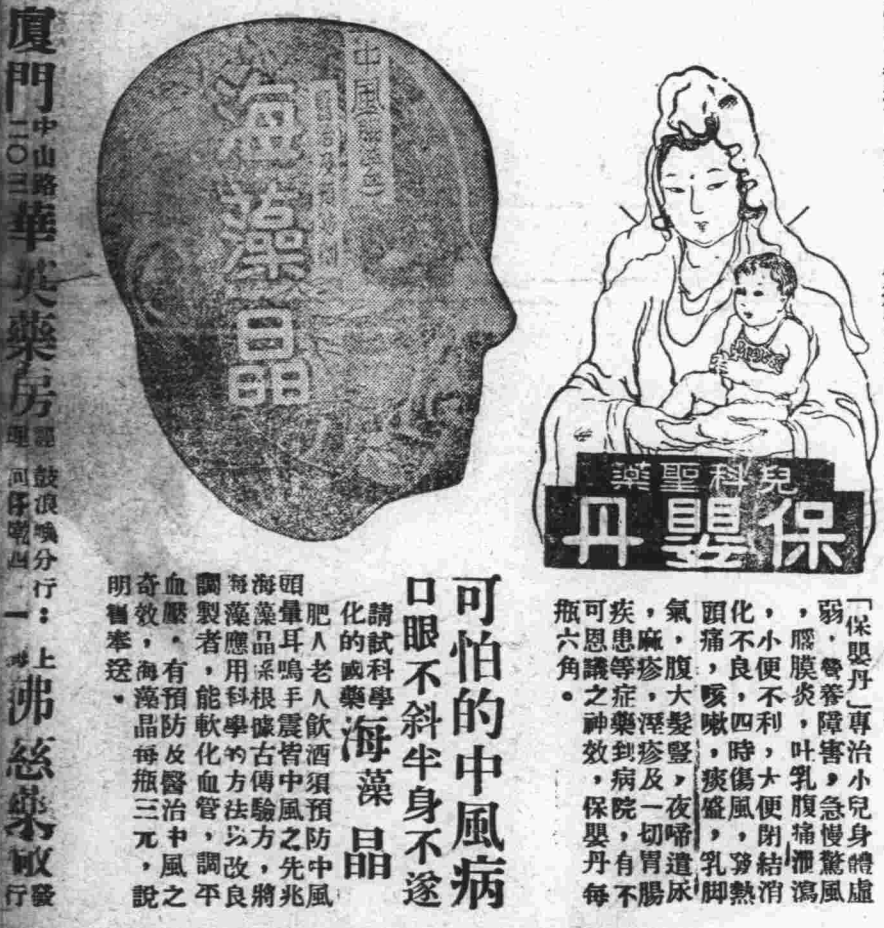 兒科聖藥
保嬰丹
「保嬰丹」專治小兒身體虛
弱，營養障害，急慢驚風
，腦膜炎，吐乳腹痛泄瀉
，小便不利，大便閉結消
化不良，四時傷風，發熱
頭痛，咳嗽，痰盛，乳脚
氣，腹大髮豎，夜啼遺尿
，麻疹，溼疹及一切胃腸
疾患等症藥到病院，有不
可思議之神效，保嬰丹每
瓶六角。
中風
海藻晶
可怕的中風病
口眼不斜半身不遂
請試科學
化的國藥
海藻晶
肥人老人飲酒須預防中風
頭暈耳鳴手震皆中風之先兆
海藻晶係根據古傳驗方，將
海藻應用科學的方法以改良
調製者，能軟化血管，調平
血壓，有預防及醫治中風之
奇效，海藻晶每瓶三元，說
明書奉送。
廈門
中山路
二〇三
華英藥房
經理
鼓浪嶼分行：
上海
佛慈藥
發行